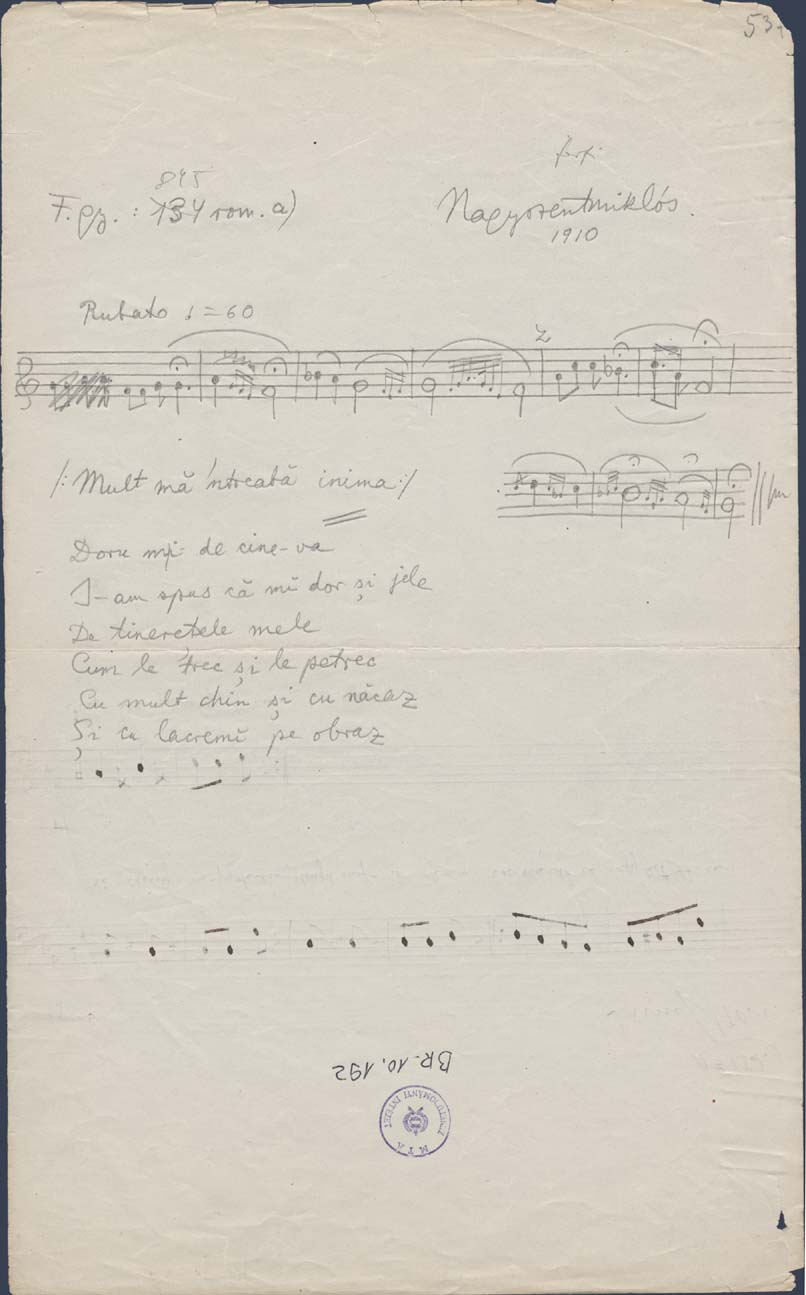 53.
845
F. gr. : 734 rom. a)
Nagyszentmiklós.
1910
Rubato ♩ = 60
2
/: Mult mă 'ntreabă inima :/
Doru mi de cine-va
I-am spus că mi dor și jele
De tinerețele mele
Cum le trec și le petrec
Cu mult chin și cu năcaz
Și cu lacremi pe obraz
BR. 10.192
M T A
ZENETUDOMÁNYI INTÉZET